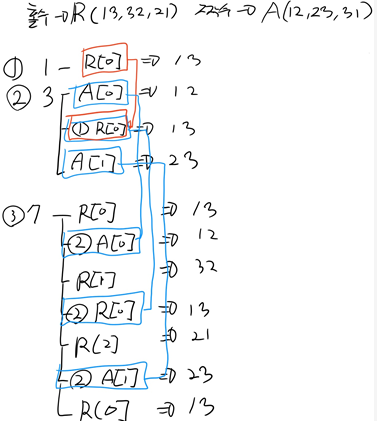 홀수 → R(13,32,21) 짝수 → A(12,23,31)
① 1 – R[0] ⇒ 13
② 3 A[0] ⇒ 12
① R[0] ⇒ 13
A[1] ⇒ 23
③ 7 – R[0] ⇒ 13
② A[0] ⇒ 12
R[1] ⇒ 32
② R[0] ⇒ 13
R[2] ⇒ 21
② A[1] ⇒ 23
R[0] ⇒ 13